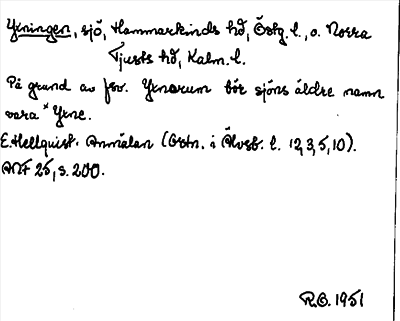 Yxningen, sjö, Hammarkinds hd, Östg. l., o. Norra
Tjusts hd, Kalm. l.
På grund av fsv. Yxnarum bör sjöns äldre namn
vara *Yxne.
E. Hellquist. Anmälan (Ortn. i Älvsb. l. 12,3,5,10).
ANF 25, s. 200.
R.O. 1951